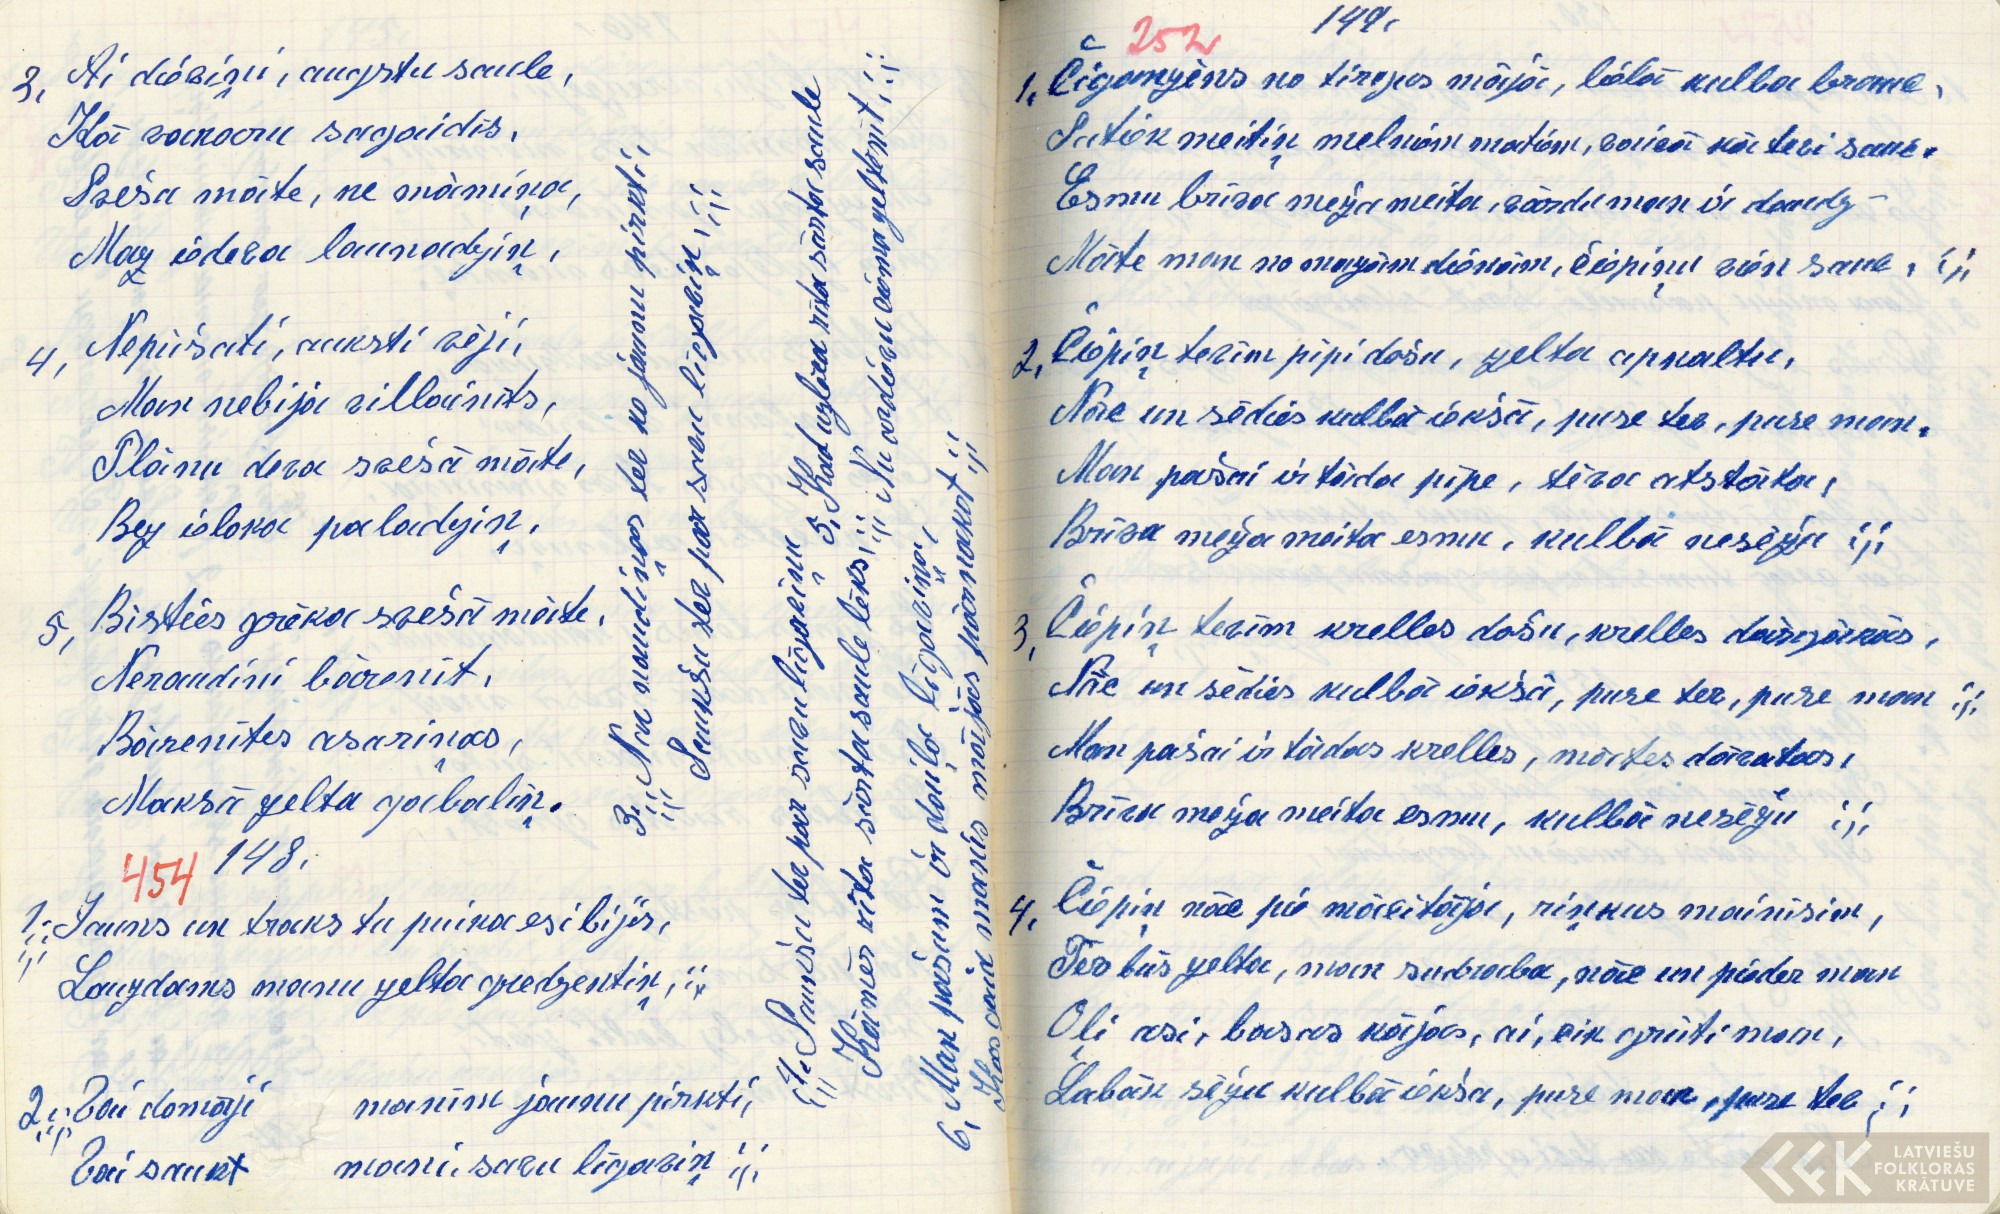 3, Ai dieviņi, augstu saule,
Kā vakaru sagaidīs,
Sveša māte, ne māmiņa,
Maz iedeva launadziņ,
4, Nepūšati, auksti vēji,
Man nebija villainīts,
Plānu deva svešā māte,
Bez ieloka paladziņ,
5, Bisties grēka svešā māte,
Neraudini bārenīt,
Bārenītes asariņas,
Maksā zelta gabaliņ.
454 148.
1, Jauns un traks tu puika esi bijis,
Lauzdams manu zelta gredzentiņ,
2, Vai domāji manim jaunu pirkti,
Vai saukt mani savu līgaviņ
3, Nau naudiņas tev ko jaunu pirkti,
Saukšu tev par savu līgaviņ
4, Saukšu tev par savu līgaviņu
Kāmēr rīta sārta saule lēks
5, Kad uzlēca rīta sārta saule
Nu ardievu vienu zeltenīt
6, Man pašam ir daiļa līgaviņa,
Kas gaida manis mājās pārnākot
252 149.
1, Čigonzēns no tirgus mājā, lielā kulba brauc,
Satiek meitiņ melniem matiem, vaicā kā tevi sauc.
Esmu brīva meža meita, vārdu man ir daudz
Māte man no mazām dienām, čiepiņu vien sauc,
2, Čiepiņ tevim pīpi došu, zelta apkaltu,
Nāc un sēdies kulbā iekšā, puse tev, puse man.
Man pašai ir tāda pīpe, tēva atstāta,
Brīva meža meita esmu, kulbā nesēžu
3, Čiepiņ tevim krelles došu, krelles dārgākās,
Nāc un sēdies kulbā iekšā, puse tev, puse man
Man pašai ir tādas krelles, mātes dāvatas,
Brīva meža meita esmu, kulbā nesēžu
4, Čiepiņ nāc pie mācītāja, riņķus mainīsim,
Tev būs zelta, man sudraba, nāc un pieder man
Oļi asi, basas kājas, ai, cik grūti man,
Labāk sēžu kulbā iekša, puse man, puse tev
LATVIEŠU
FOLKLORAS
KRĀTUVE